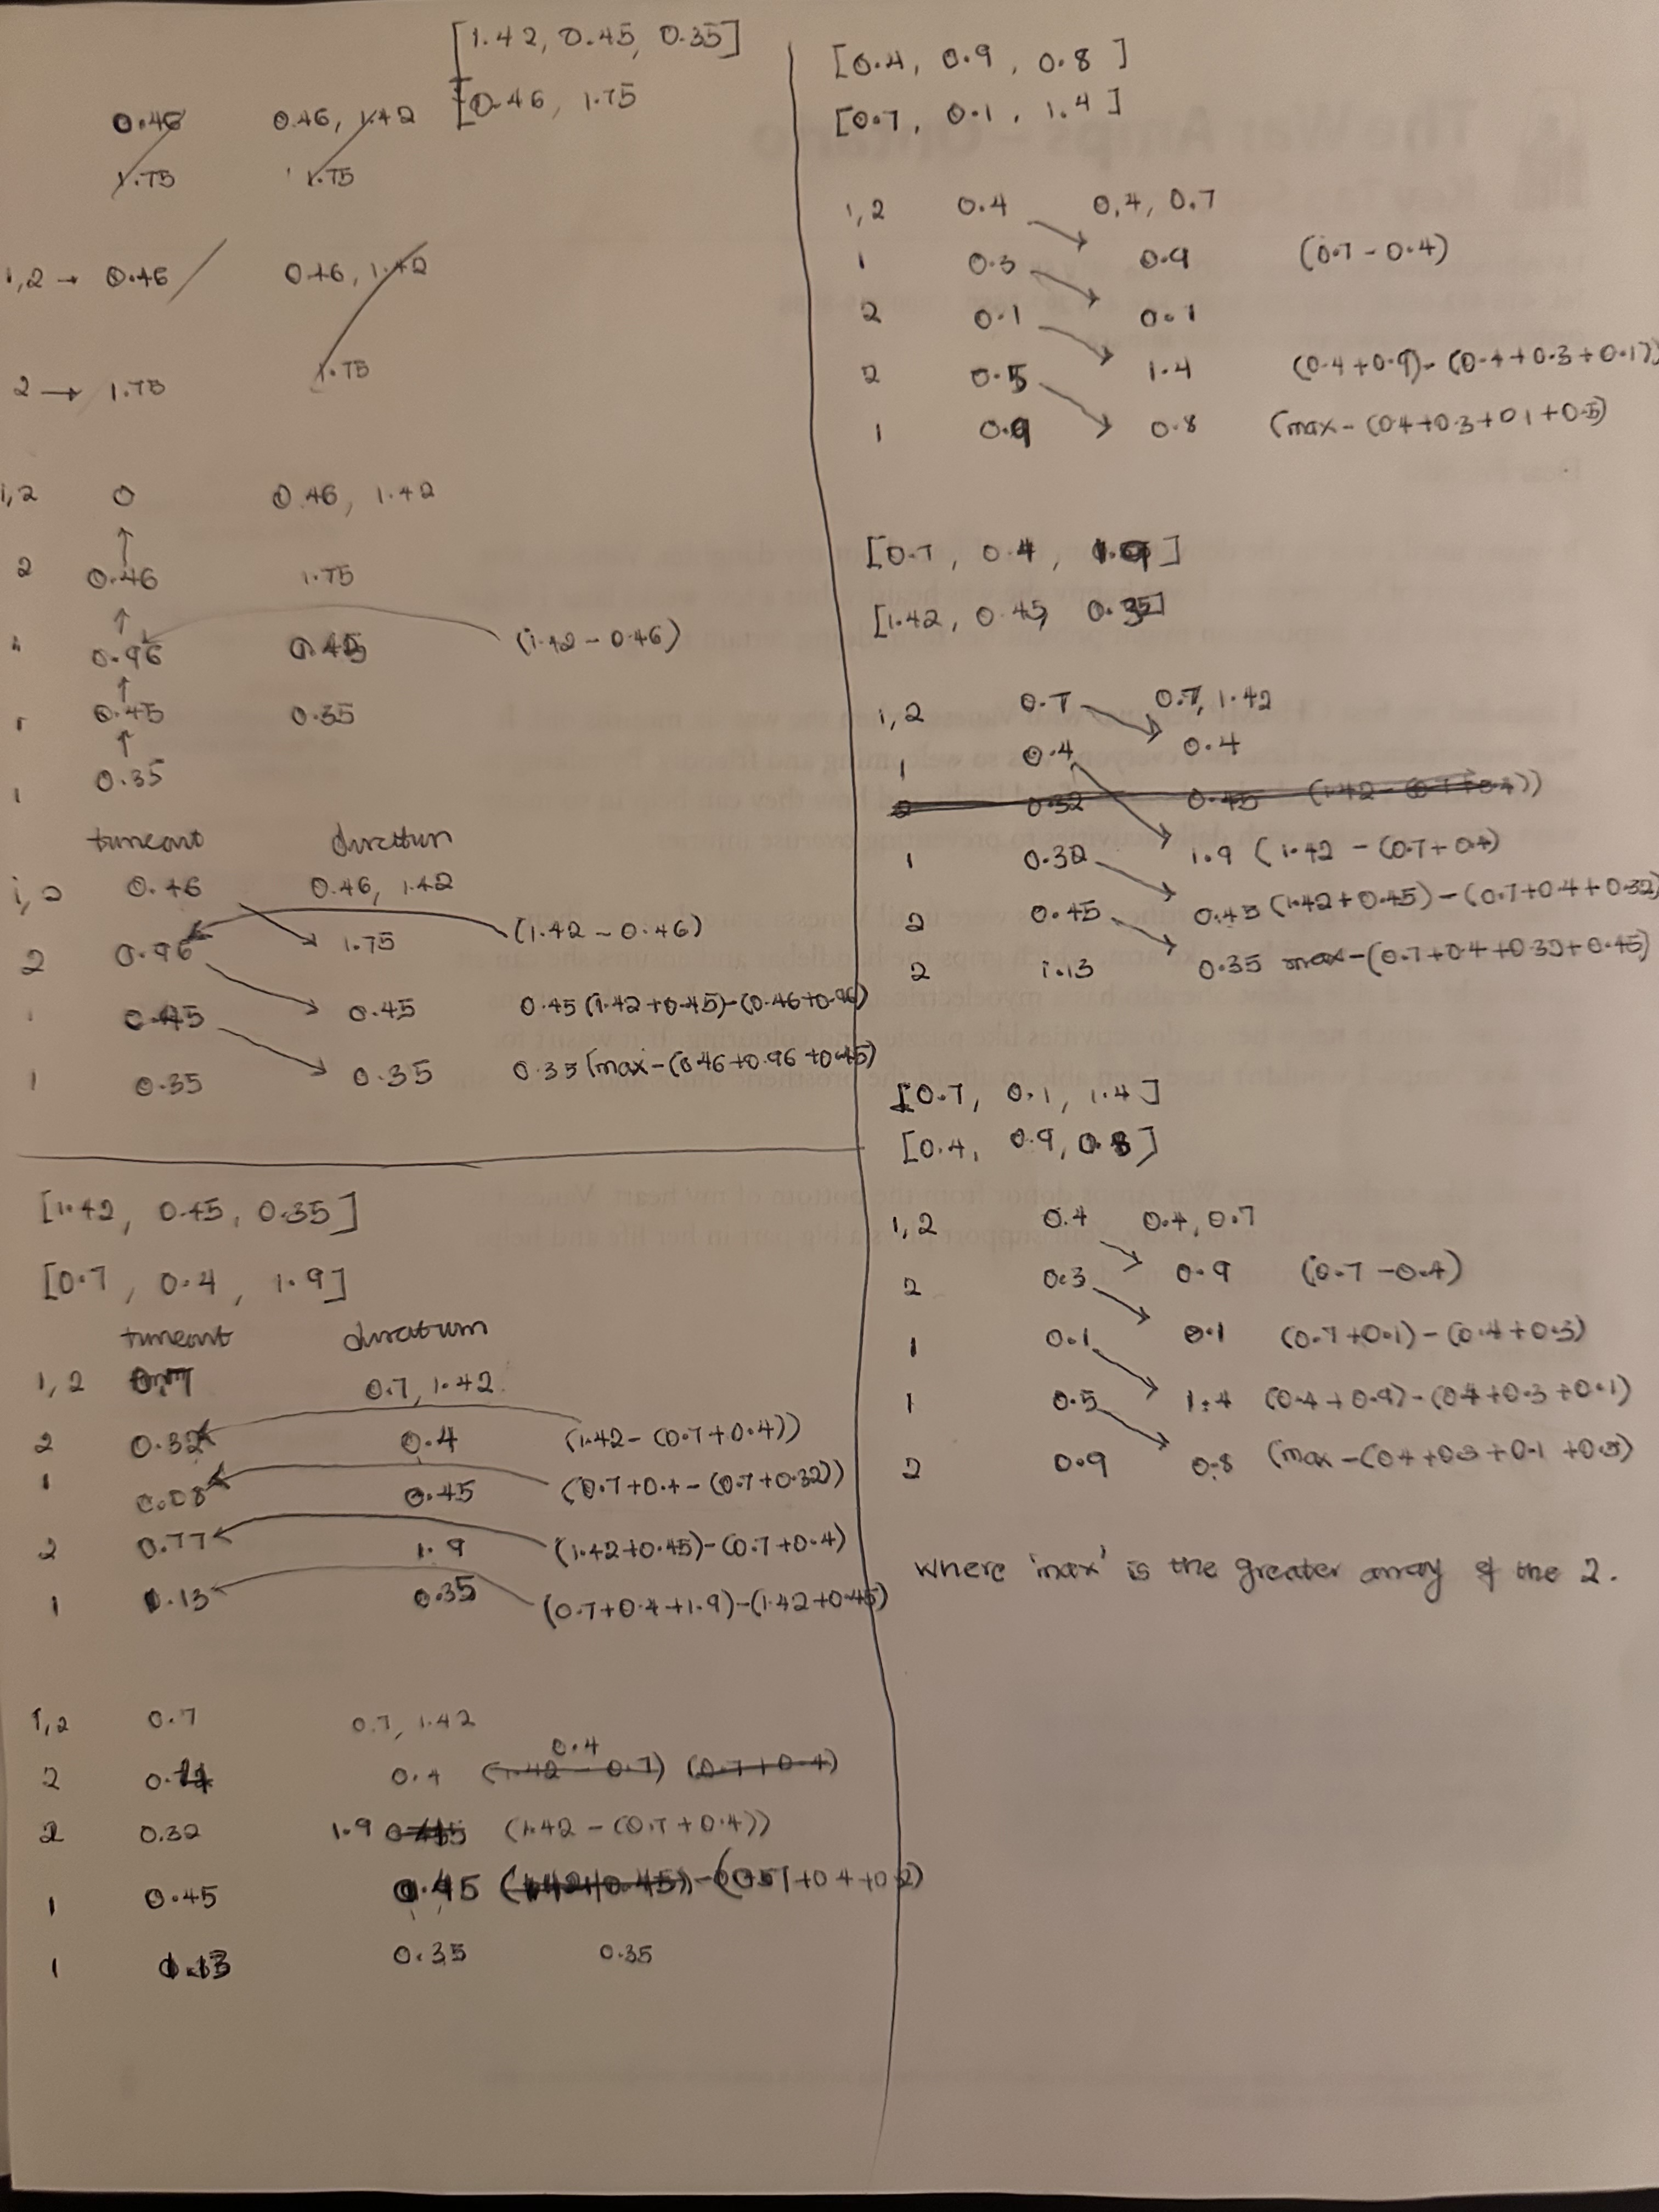 [1.42, 0.45, 0.35]
[0.46, 1.75
0.46 0.46, 1.42
1.75 1.75
1,2 → 0.46 0.46, 1.42
2 → 1.75 1.75
1,2 0 0.46, 1.42
2 0.46 1.75
0.96 0.45 (1.42 - 0.46)
0.45 0.35
1 0.35
timeout duration
1,2 0.46 0.46, 1.42
2 0.96 1.75 (1.42 - 0.46)
1 0.45 0.45 0.45 (1.42+0.45)-(0.46+0.96)
1 0.35 0.35 0.35 (max-(0.46+0.96+0.45)
[1.42, 0.45, 0.35]
[0.7, 0.4, 1.9]
timeout duration
1,2 0.7 0.7, 1.42
2 0.32 0.4 (1.42-(0.7+0.4))
1 0.08 0.45 (0.7+0.4-(0.7+0.32))
2 0.77 1.9 (1.42+0.45)-(0.7+0.4)
1 1.13 0.35 (0.7+0.4+1.9)-(1.42+0.45)
1,2 0.7 0.7, 1.42
0.4
2 0.4 (1.42-0.7) (0.7+0.4)
2 0.32 1.9 0.45 (1.42-(0.7+0.4))
1 0.45 0.45 (1.42+0.45)
1 1.13 0.35 0.35
[0.4, 0.9, 0.8]
[0.7, 0.1, 1.4]
1,2 0.4 0.4, 0.7
1 0.3 0.9 (0.7-0.4)
2 0.1 0.1
2 0.5 1.4 (0.4+0.9)-(0.4+0.3+0.1))
1 0.9 0.8 (max-(0.4+0.3+0.1+0.5)
[0.7, 0.4, 1.9]
[1.42, 0.45, 0.35]
1,2 0.7 0.7, 1.42
1 0.4 0.4
2 0.32 0.45 (1.42-(0.7+0.4))
1 0.32 1.9 (1.42-(0.7+0.4)
2 0.45 0.45 (1.42+0.45)-(0.7+0.4+0.32)
2 1.13 0.35 max-(0.7+0.4+0.32+0.45)
[0.7, 0.1, 1.4]
[0.4, 0.9, 0.8]
1,2 0.4 0.4, 0.7
2 0.3 0.9 (0.7-0.4)
1 0.1 0.1 (0.7+0.1)-(0.4+0.3)
1 0.5 1.4 (0.4+0.9)-(0.4+0.3+0.1)
2 0.9 0.8 (max-(0.4+0.3+0.1+0.5)
where 'max' is the greater array of the 2.